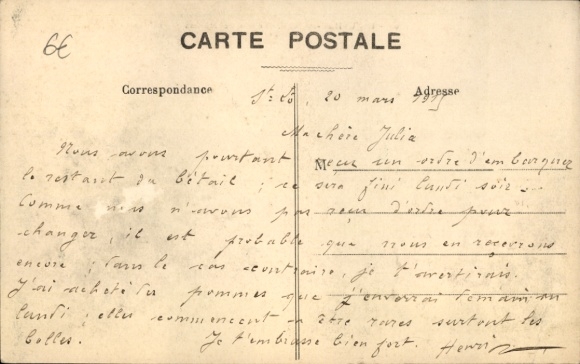 6€
CARTE POSTALE
Correspondance
Adresse
St-Lô, 20 mars 1915
Ma chère Julia
Nous avons pourtant reçu un ordre d'embarquer
M
le restant du bétail ; ce sera fini lundi soir.
Comme nous n'avons pas reçu d'ordre pour
changer, il est probable que nous en recevrons
encore ; dans le cas contraire, je t'avertirais.
J'ai acheté des pommes que j'enverrai demain ou
lundi ; elles commencent à être rares surtout les
belles. Je t'embrasse bien fort. Henri